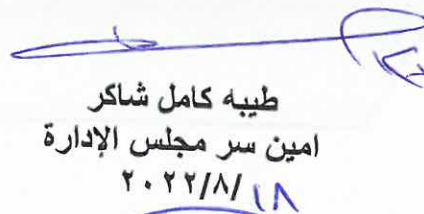 طيبه كامل شاكر
امين سر مجلس الإدارة
٢٠٢٢/٨/١٨